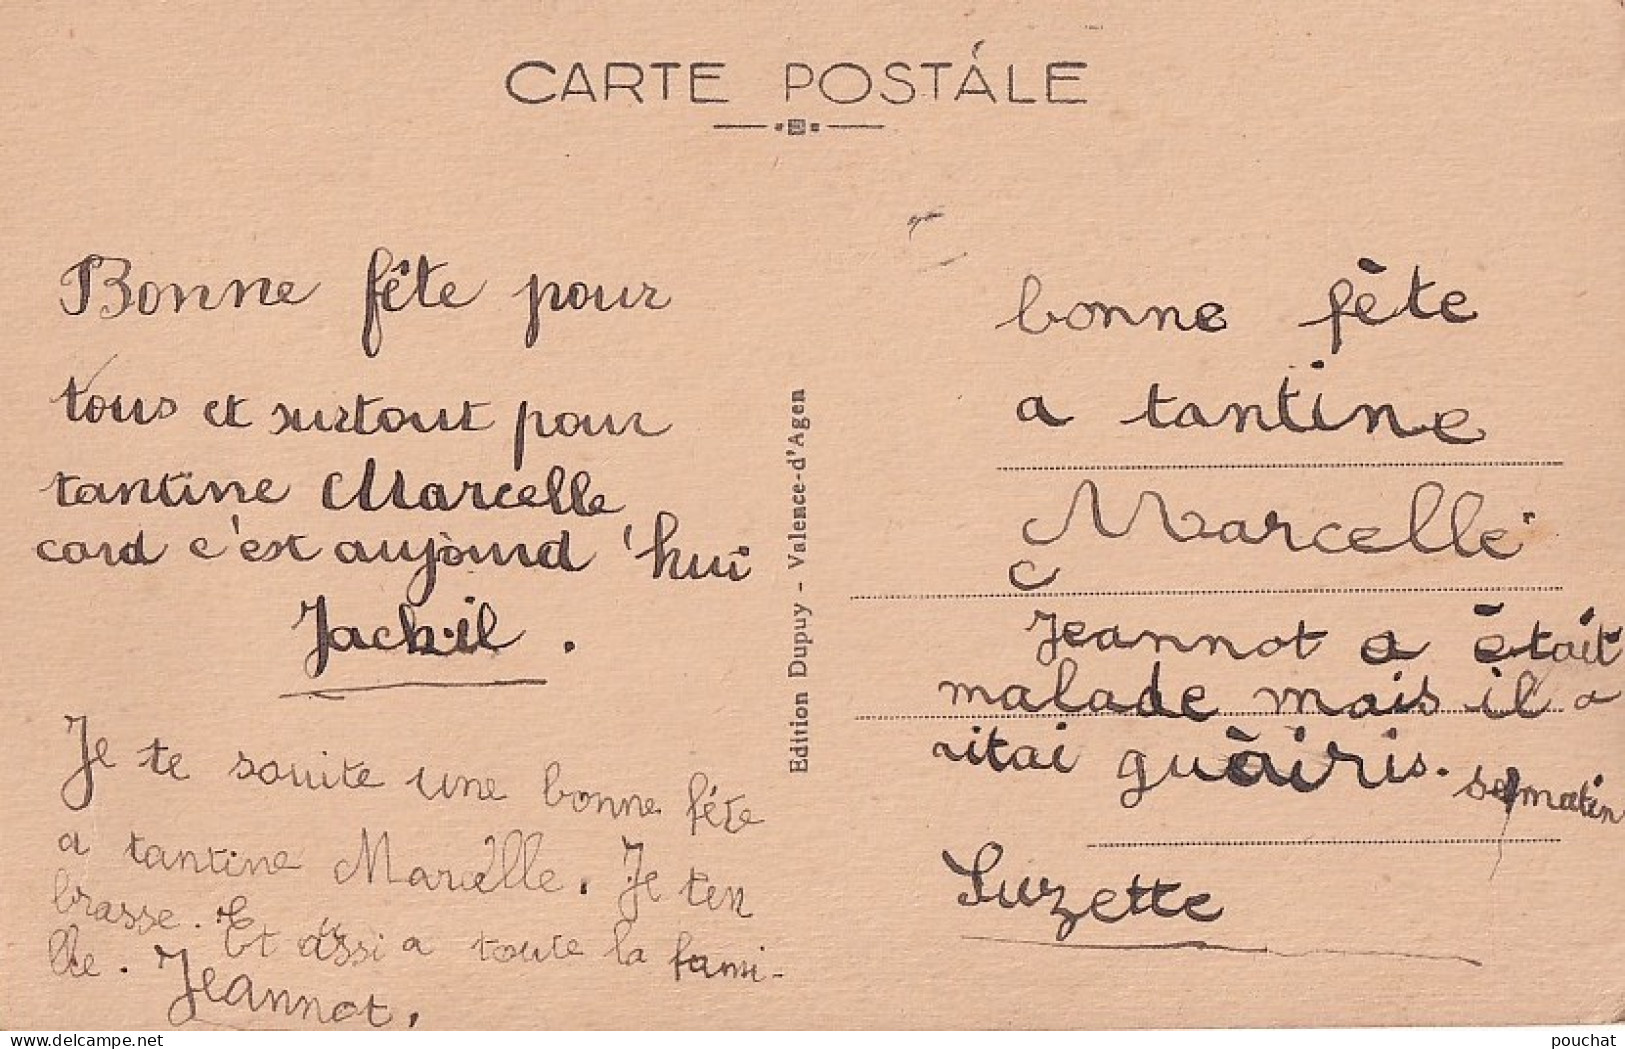 CARTE POSTALE
Bonne fête pour
tous et surtout pour
tantine Marcelle
card c'est aujourd'hui
Jackil.
Je te souite une bonne féte
a tantine Marcelle. Je ten
brasse. Et assi a toute la fami-
lle. Jeannot.
Edition Dupuy - Valence-d'Agen
bonne fète
a tantine
Marcelle
Jeannot a était
malade mais il a
itai guàiris. se matin
Suzette
pouchat
delcampe.net